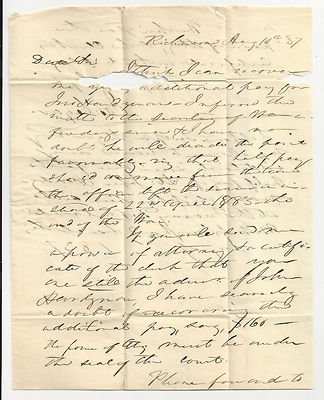 Richmond Aug 10th 57
Dear Sir I think I can recover
one year additional pay for
Jno Hardyman - I informed the
matter to the Secretary of War a
few days since & I have no
doubt he will decide the point
favorably - viz that half pay
should commence from the time
the officer left the service in-
stead of 22nd April 1783 - the
end of the War.
If you will send me
a power of attorney & certifi-
cate of the clerk that you
are still the admr. of John
Hardyman, I have scarcely
a doubt of recovering the
additional pay, say, $160 -
the power of Atty must be under
the seal of the court.
Please forward to